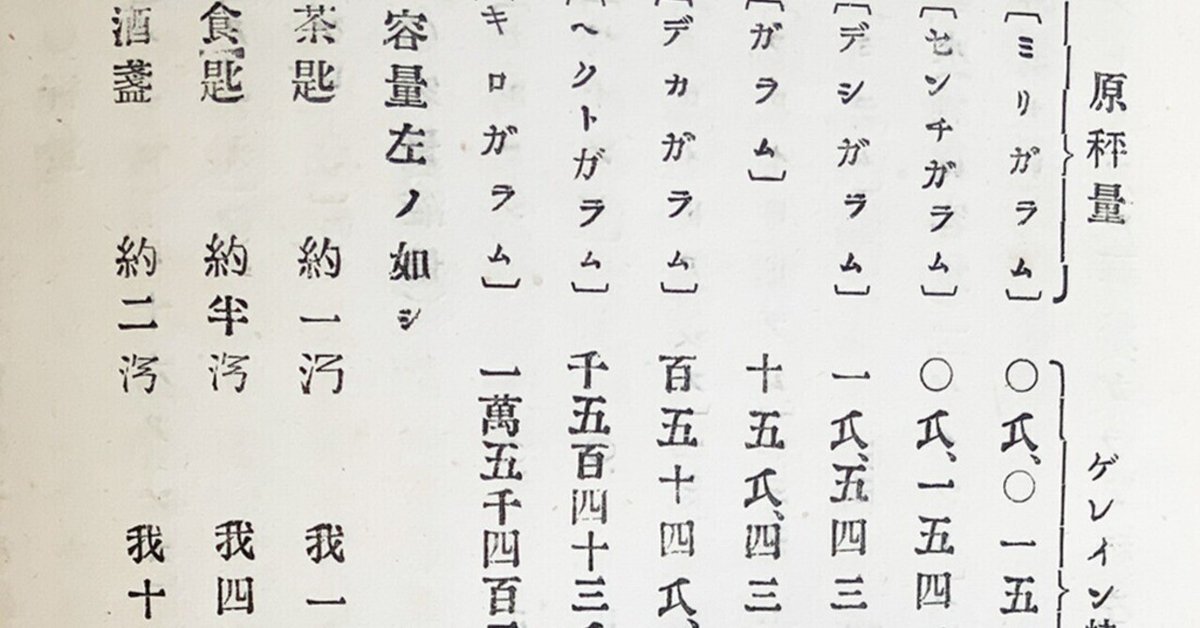 原秤量 ゲレイン
〔ミリガラム〕 〇、〇一五
〔センチガラム〕 〇、一五四
〔デシガラム〕 一、五四三
〔ガラム〕 十五、四三
〔デカガラム〕 百五十四、
〔ヘクトガラム〕 千五百四十三
キロガラム〕 一萬五千四百
容量左ノ如シ
茶匙 約一 我一
食匙 約半 我四
酒盞 約二 我十